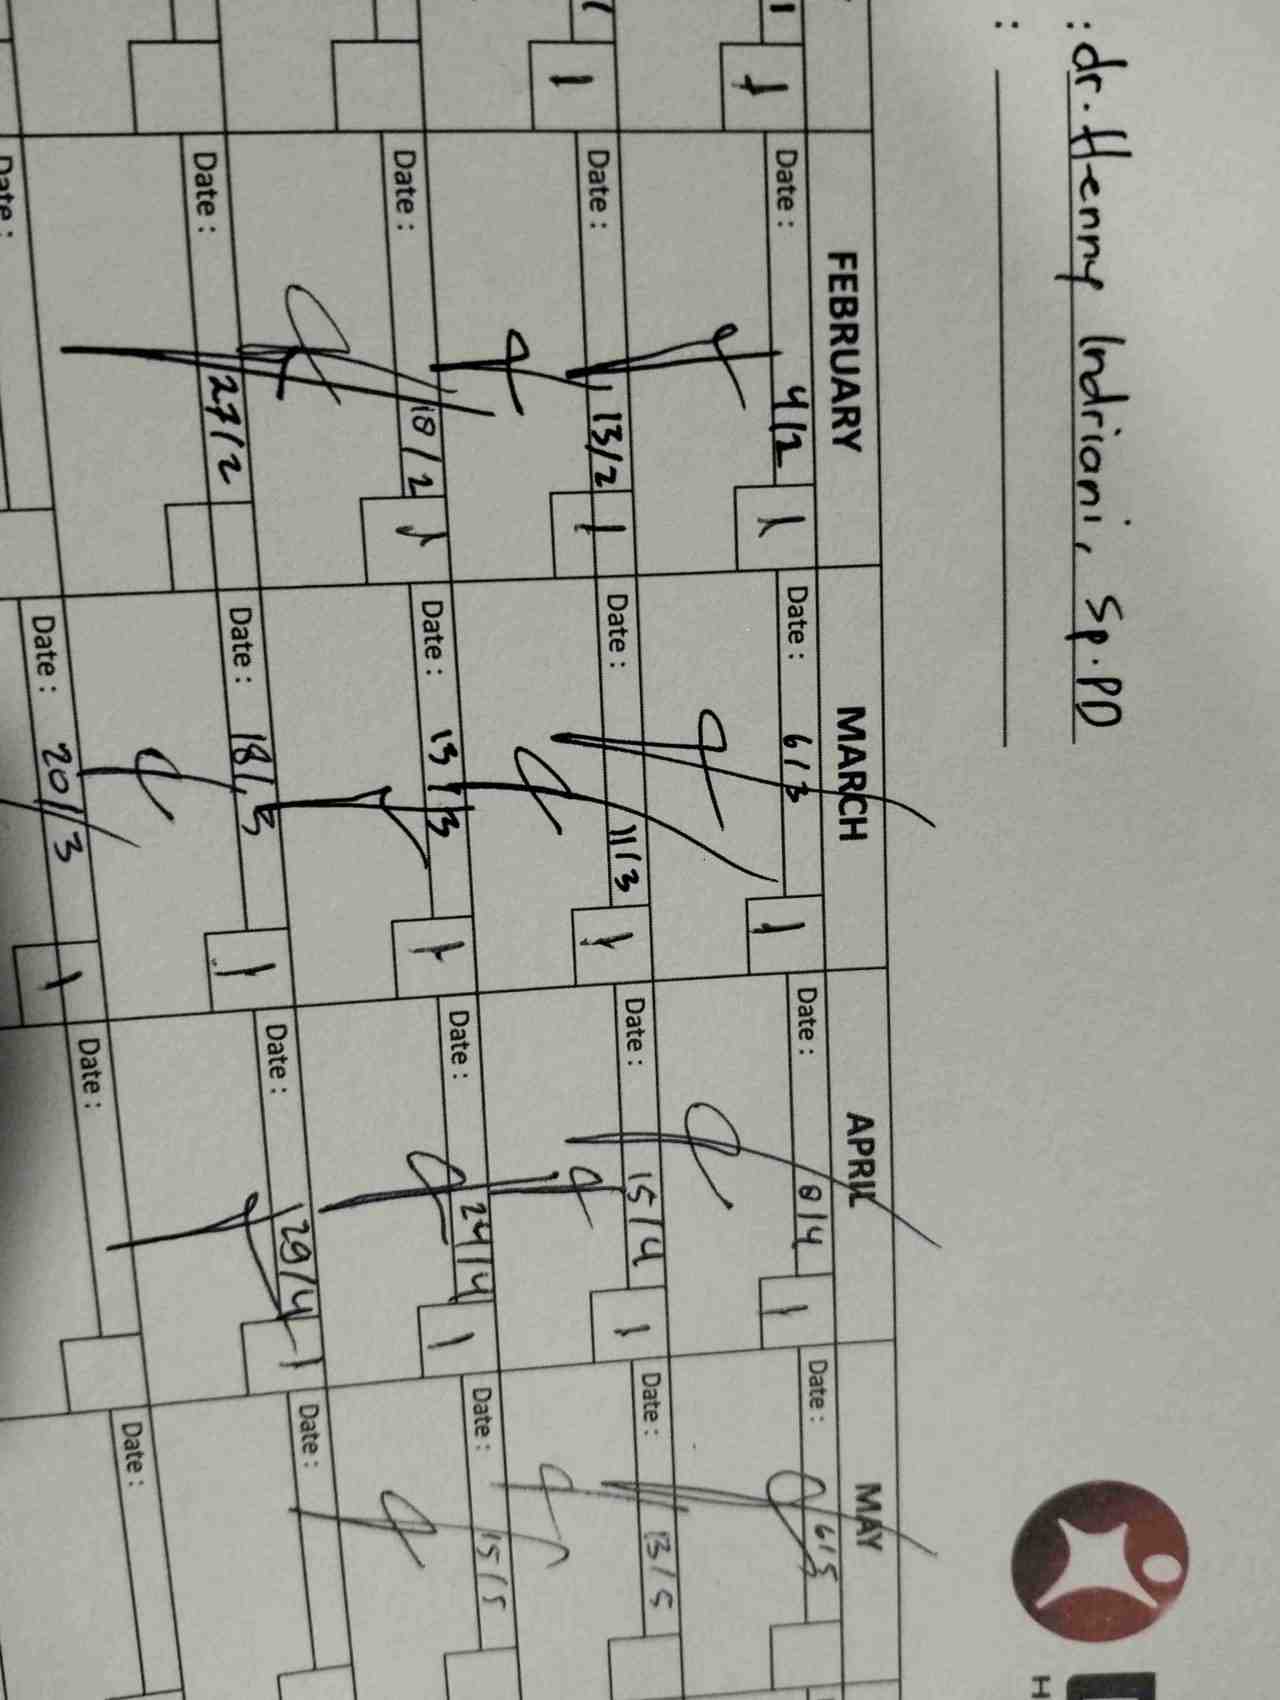 : dr. Henny Indriani, Sp.PD
:
FEBRUARY MARCH APRIL MAY
1 Date : 4/2 1 Date : 6/3 1 Date : 8/4 1 Date : 6/5
1 Date : 13/2 1 Date : 11/3 1 Date : 15/4 1 Date : 13/5
Date : 18/2 1 Date : 13/3 1 Date : 24/4 1 Date : 15/5
Date : 27/2 Date : 18/3 1 Date : 29/4 1 Date :
Date : Date : 20/3 1 Date : Date :
H